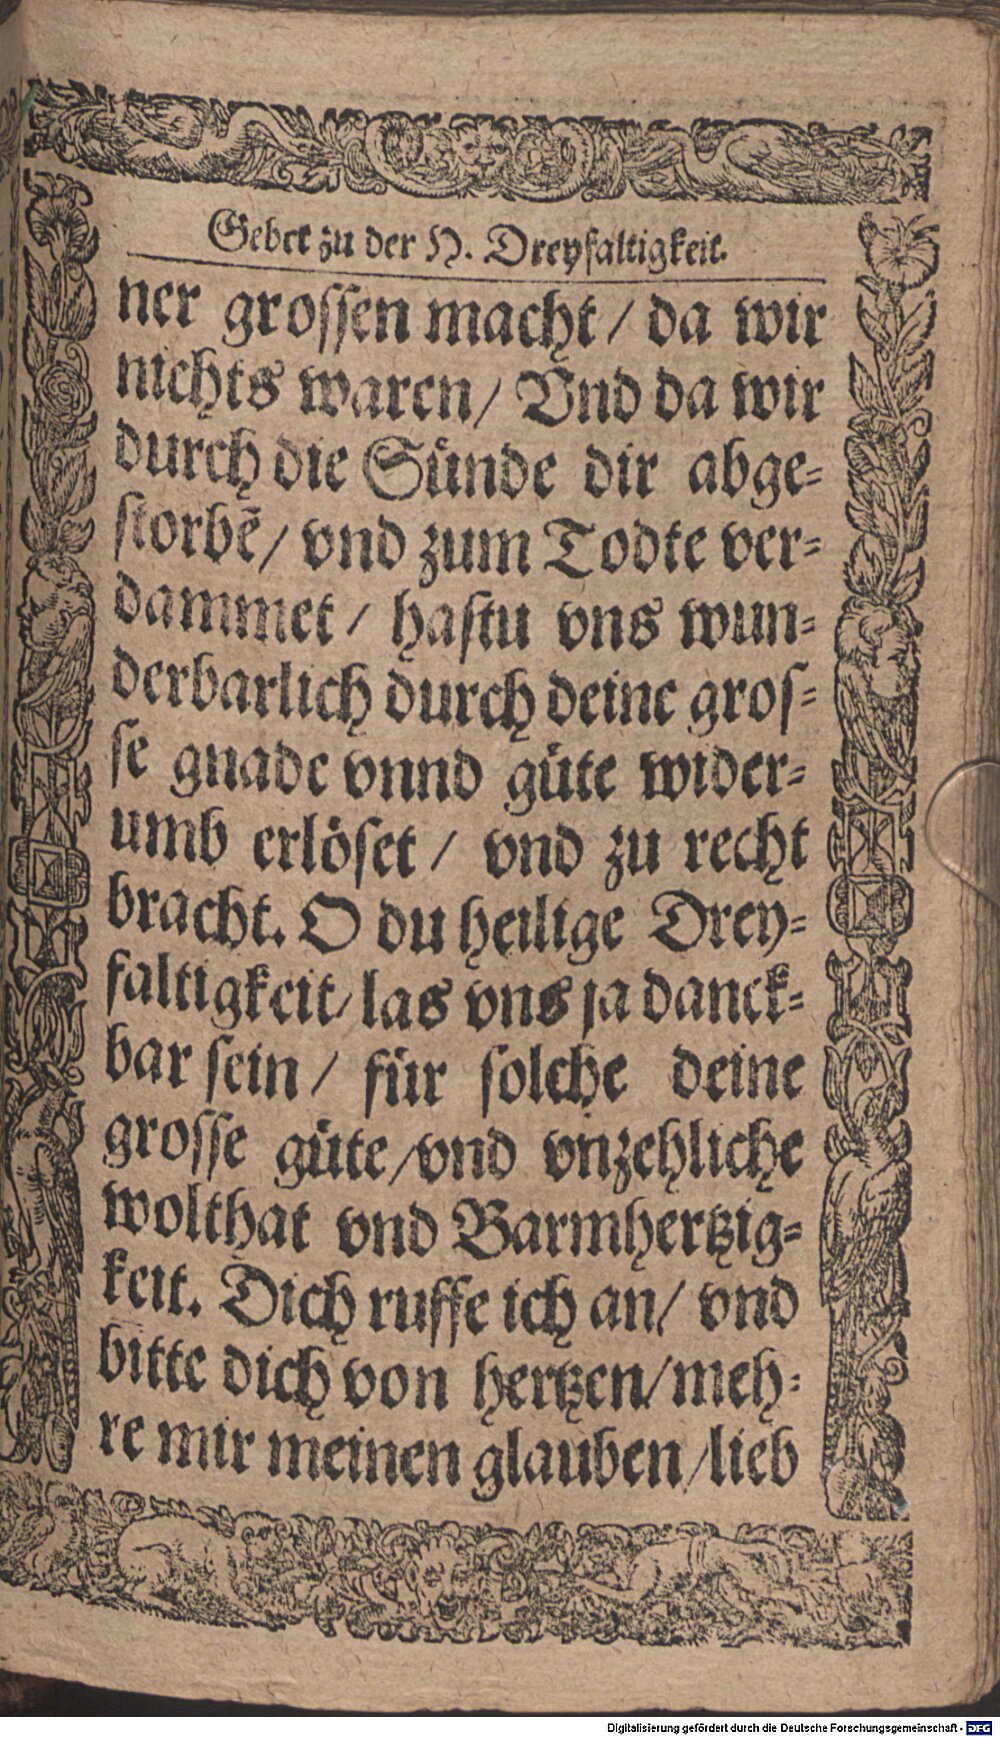 Gebet zu der H. Dreyfaltigkeit.
ner grossen macht / da wir
nichts waren / Vnd da wir
durch die Sünde dir abge-
storbẽ / vnd zum Todte ver-
dammet / hastu vns wun-
derbarlich durch deine gros-
se gnade vnnd güte wider-
umb erlöset / vnd zu recht
bracht. O du heilige Drey-
faltigkeit / las vns ja danck-
bar sein / für solche deine
grosse güte / vnd vnzehliche
wolthat vnd Barmhertzig-
keit. Dich ruffe ich an / vnd
bitte dich von hertzen / meh-
re mir meinen glauben / lieb
Digitalisierung gefördert durch die Deutsche Forschungsgemeinschaft - DFG